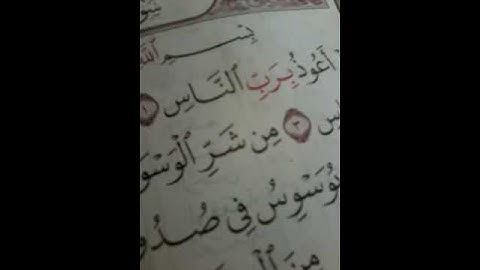 بِسْمِ ٱللَّهِ
أَعُوذُ بِرَبِّ ٱلنَّاسِ ١
٣ مِن شَرِّ ٱلْوَسْوَ
يُوَسْوِسُ فِى صُدُو
مِنَ